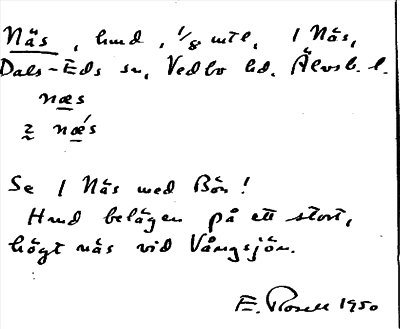 Näs, hmd, 1/8 mtl, 1 Näs,
Dals-Eds sn, Vedbo hd. Älvsb. l.
næs
2 næ´s
Se 1 Näs med Bön!
Hmd belägen på ett stort,
högt näs vid Vångsjön.
E. Rosell 1950